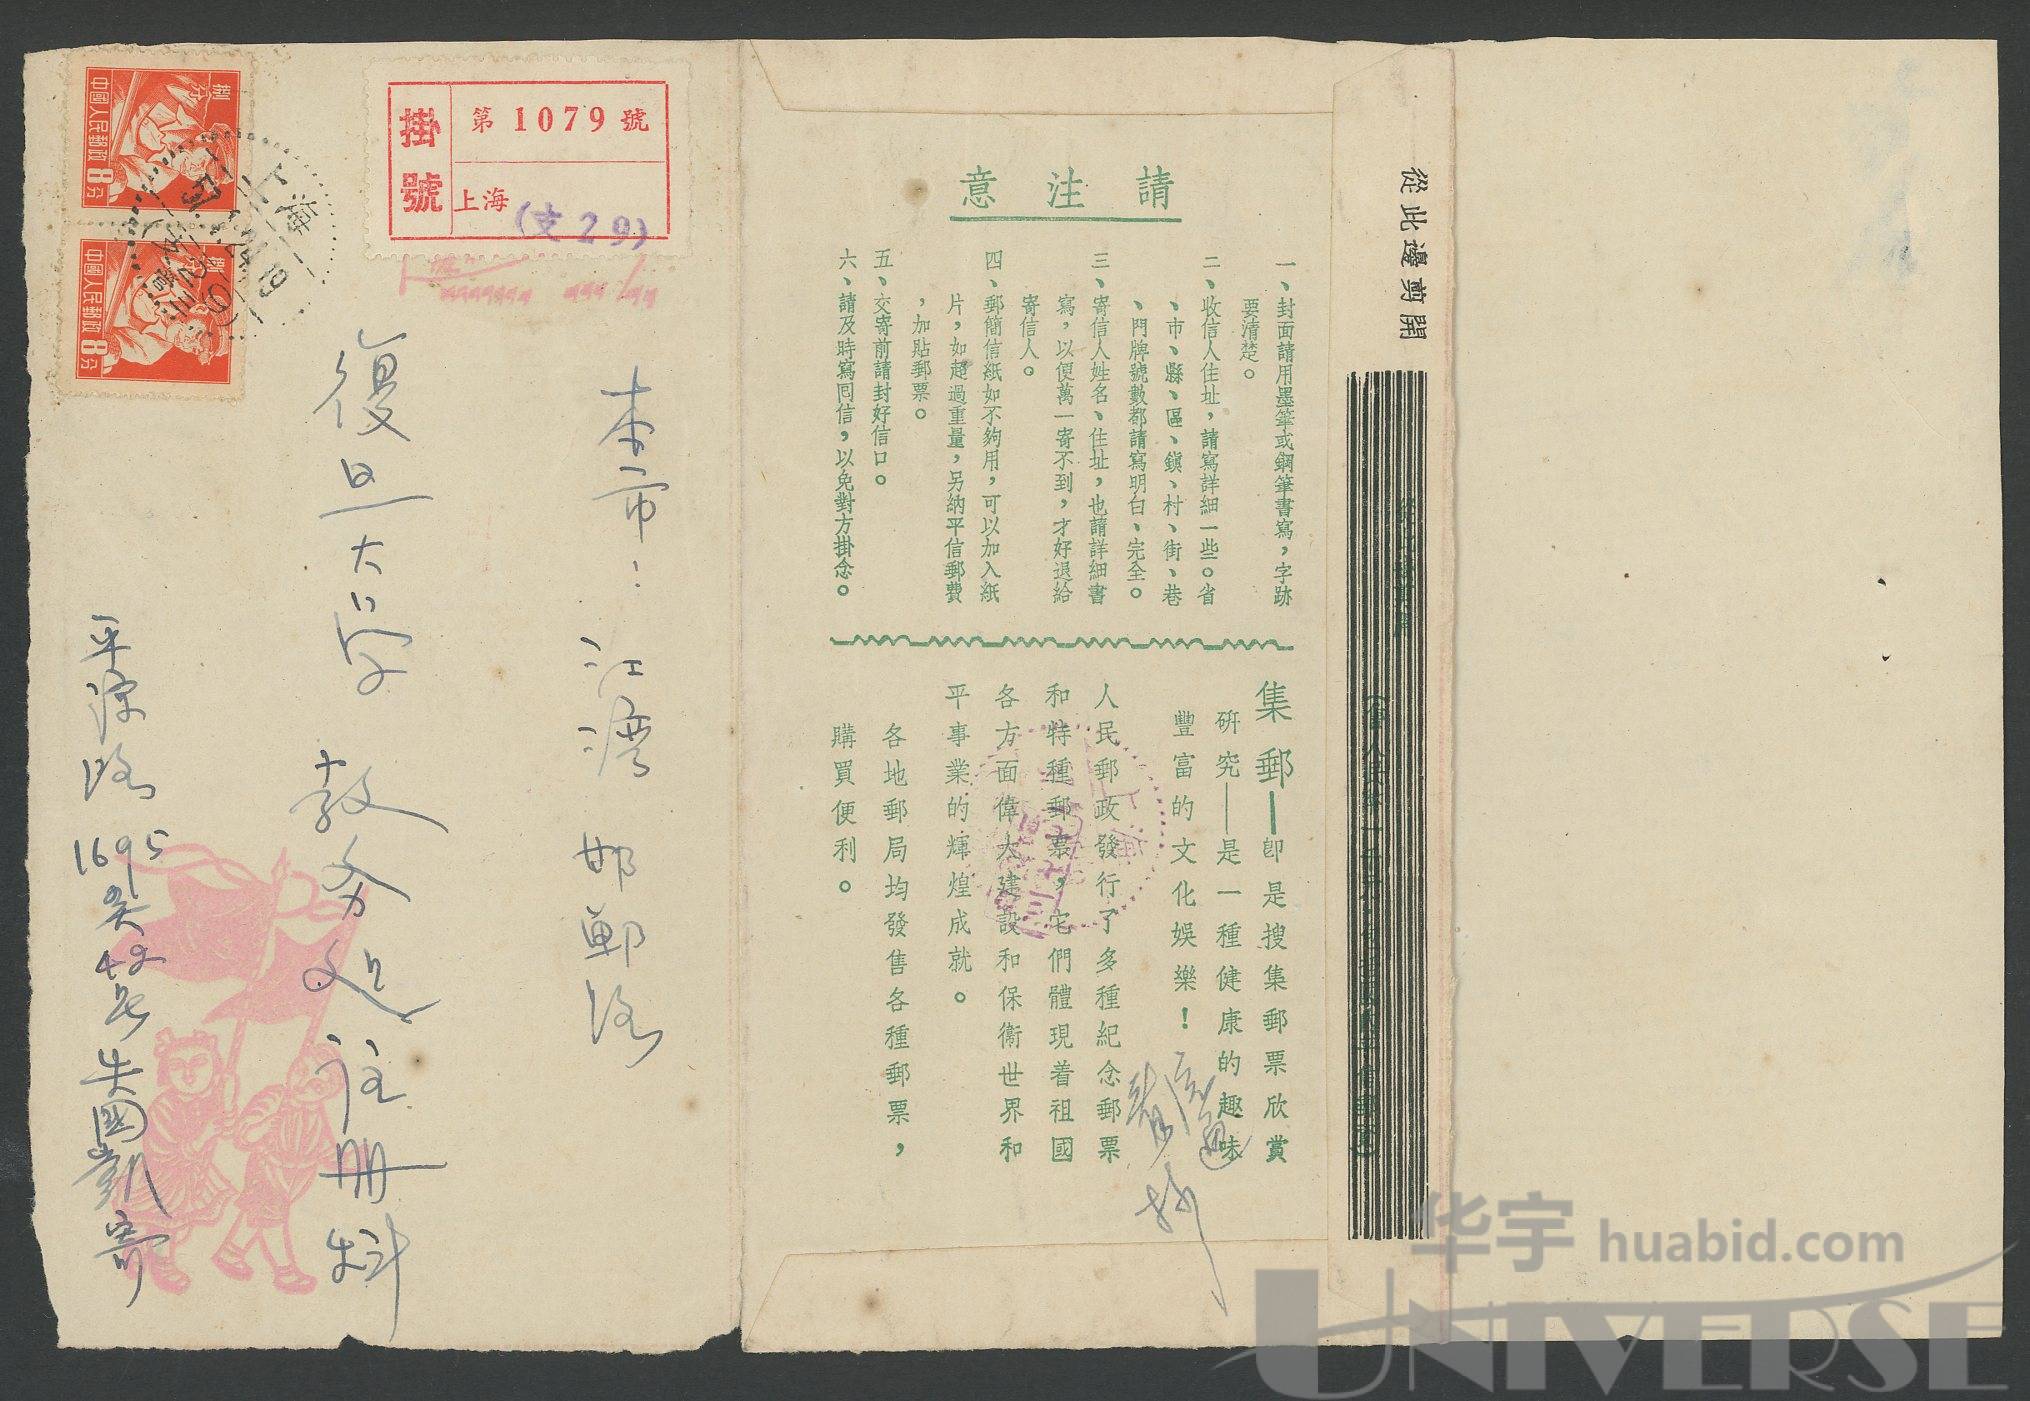 捌分
中國人民郵政
8分
捌分
中國人民郵政
8分
上海
掛號
第1079號
上海
(支29)
本市：江湾邯郸路
復旦大学教务处注册科
平凉路
1695
42号
朱國凱寄
請注意
一、封面請用墨筆或鋼筆書寫，字跡
要清楚。
二、收信人住址，請寫詳細一些。省
、市、縣、區、鎭、村、街、巷
、門牌號數都請寫明白、完全。
三、寄信人姓名、住址，也請詳細書
寫，以便萬一寄不到，才好退給
寄信人。
四、郵簡信紙如不夠用，可以加入紙
片，如超過重量，另納平信郵費
，加貼郵票。
五、交寄前請封好信口。
六、請及時寫囘信，以免對方掛念。
集郵—卽是搜集郵票欣賞
研究—是一種健康的趣味
豐富的文化娛樂！
人民郵政發行了多種紀念郵票
和特種郵票，它們體現着祖國
各方面偉大建設和保衞世界和
平事業的輝煌成就。
各地郵局均發售各種郵票，
購買便利。
從此邊剪開
华宇 huabid.com
UNIVERSE